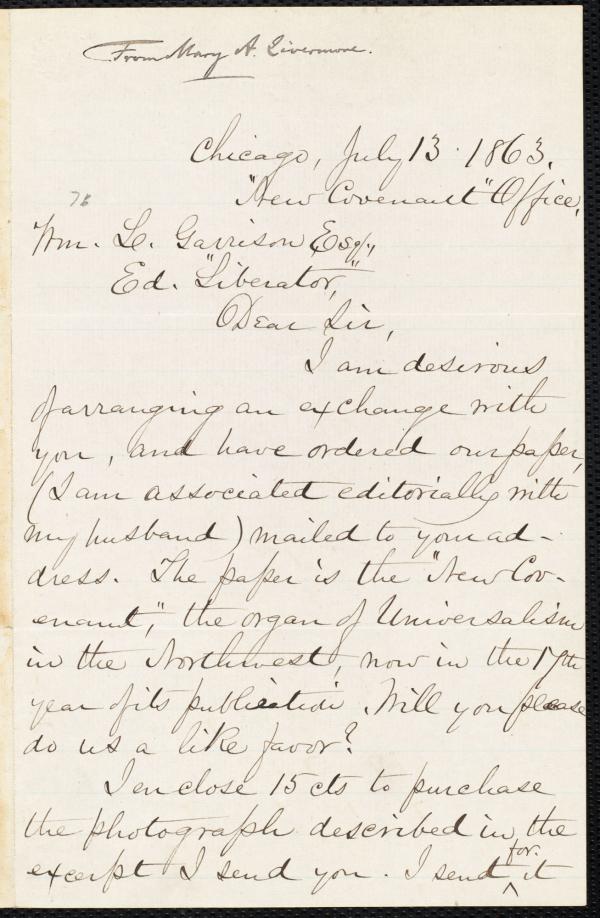 From Mary A. Livermore.
Chicago, July 13. 1863.
"New Covenant" Office,
Wm. L. Garrison Esq.,
Ed. "Liberator,"
Dear Sir,
I am desirous
of arranging an exchange with
you, and have ordered our paper,
(I am associated editorially with
my husband) mailed to your ad-
dress. The paper is the "New Cov-
enant," the organ of Universalism
in the Northwest, now in the 17th
year of its publication. Will you please
do us a like favor?
I enclose 15 cts to purchase
the photograph described in the
excerpt I send you. I send for. it